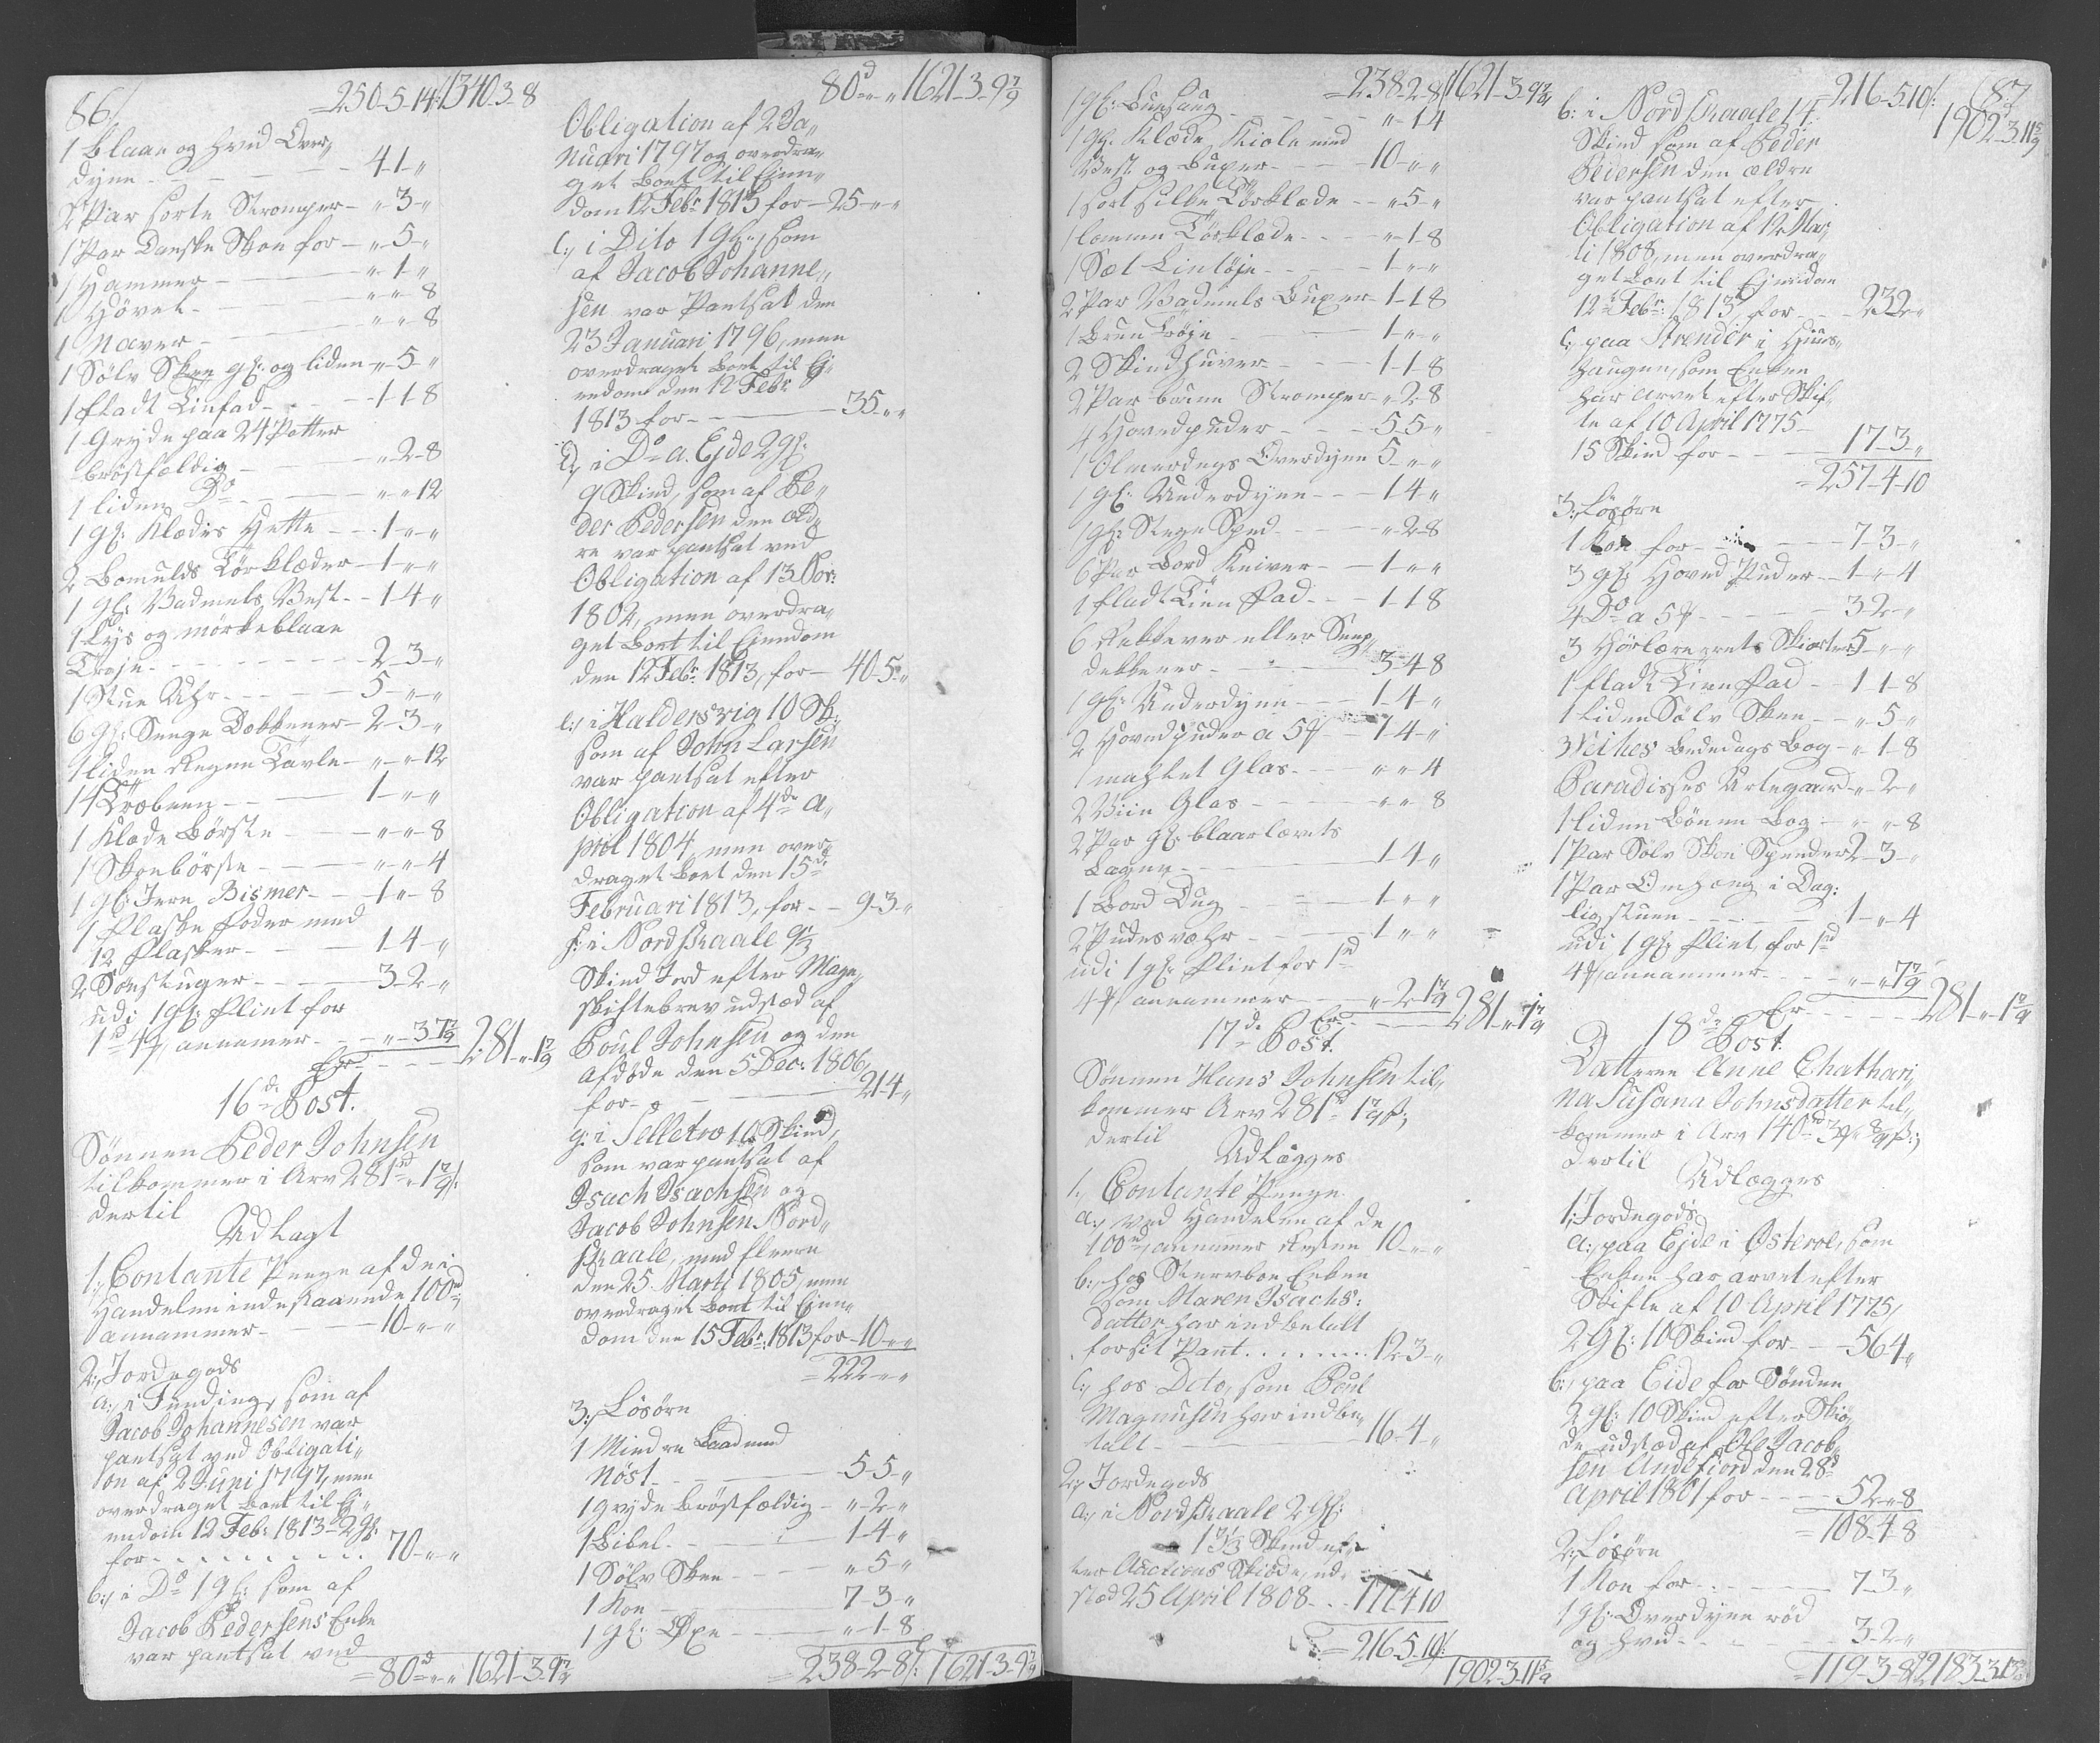 86/
=250-5-14/:1340-3-8
1 blaae og hvid Over„
dyne - - - - 4-1-„
2 Par sorte Strømper - „-3-„
1 Par Danske Skoe for - „-5-„
1 Hammer - - „-1-„
1 Høvel - - „-„-8
1 Naver - - „-„-8
1 Sölv Skee gl: og liden „-5-„
1 fladt Linfad - - 1-1-8
1 Gryde paa 24 Potter
brøstfældig - - „-2-8
1 liden Do - - „-„-12
1 gl: Klædes Hette - - 1-„-„
2 Bomulds Tørklæder - 1-„-„
1 gl: Vadmels Vest - - 1-4-„
1 lys og mørkeblaae
Trøje - - - - 2-3-„
1 Stue Uhr - - - 5-„-„
6 gl: Senge Dækkener - 2-3-„
1 liden Regne Tavle - „-„-12
14 Træbeen - - 1-„-„
1 Klæde Börste - - „-„-8
1 Skoebörste - - „-„-4
1 gl: Jern Bismer - - 1-„-8
1 Flaske Foder med
12 Flasker - - 1-4-„
2 Sörstuger - - 3-2-„
udi 1 gl: Flint for
1d 4ß annammer - - „-3-1 7/9
Er - - - 281-„-1 7/9
16de Post.
Sønnen Peder Johnsen
tilkommer i Arv 281d „ 1 7/9ß:
dertil
Udlagt
1., Contante Penge af de i
Handelen indestaaende 100d,
annammer - - 10-„-„
2., Jordegods
a:, i Funding, som af
Jacob Johannesen var
pantsat ved Obligati„
on af 2 Juni 1797, men
overdraget boet til Ei„
endom 12 Feb: 1813 2 gl:
for - - - - 70-„-„
b:, i Do 1 gl: som af
Jacob Pedersens Enke
var pantsat ved
=80d-„-„ 1621-3-9 7/9
80d-„-„ 1621-3-9 7/9
Obligation af 2 Ja„
nuari 1797 og overdra„
get boet til Eien„
dom 12 Febr 1813 for - 25-„-„
c:, i Dito 1 gl:, som
af Jacob Johanne„
sen var Pantsat den
23 Januari 1796, men
overdraget boet til Ej„
endom den 12 Febr:
1813 for - - 35-„-„
d:, i Do a. Ejde 2 gl:
9 Skind, som af Pe„
der Pedersen den æld„
re var pantsat ved
Obligation af 13 Nov:
1802, men overdra„
get boet til Eiendom
den 12 Febr: 1813, for - 40-5-„
e:, i Haldersvig 10 Sk:,
som af John Larsen
var pantsat efter
Obligation af 4de A„
pril 1804, men over„
draget boet den 15de
Februari 1813, for - - 9-3-„
f: i Nordskaale 9½
Skind Jord efter Mage„
skiftebrev udsted af
Poul Johnsen og den
afdøde den 5 Dec: 1806,
for - - - 21-4-„
g: i Selletræ 10 Skind,
som var pantsat af
Isach Isachsen og
Jacob Johnsen Nord„
skaale, med fleere
den 25 Marti 1805, men
overdraget boet til Eien„
dom den 15 Febr: 1813 for - 10-„-„
=222-„-„
3., Løsøre
1 Mindre Baad med
Nøst - - - 5-5-„
1 gryde brøstfældig - „-2-„
1 Bibel - - - 1-4-„
1 Sölv Skee - - „-5-„
1 Koe - - 7-3-„
1 gl: Øxe - - „-1-8
=238-2-8/: 1621-3-9 7/9
=238-2-8/: 1621-3-9 7/9
- - „-1-4
1 gl. Klæde Kiole med
Vest og Buxer - - 10-„-„
1 sort silke Törklæde - - „-5-„
1 lomme Törklæde - - - „-1-8
1 Sæt Lintöje - - - 1-„-„
2 Par Vadmels Buxer - 1-1-8
1 Bruun Trøje - - 1-„-„
2 Skindhuver - - 1-1-8
2 Par brune Strømper - „-2-8
4 Hovedpuder - - - 5-5-„
1 Olmerdugs Overdyne 5-„-„
1 gl: Underdyne - - - 1-4-„
1 gl: Stege Sped - - „-2-8
6 Par Bord Kniver - - 1-„-„
1 fladt Tien Fad - - - 1-1-8
6 Rekkever eller Seng„
dekkener - - - 3-4-8
1 gl: Underdyne - - - 1-4-„
2 Hovedpuder a 5ß - - 1-4-„
1 mahlet Glas - - - „-„-4
2 Viin Glas - - - „-„-8
2 Par gl: blaarlærets
Lagen - - - 1-4-„
1 Bord Dug - - - 1-„-„
2 Pudesvæhr - - - 1-„-„
udi 1 gl: Flint for 1d
4ß, annammer - - „-2-1 7/9
Er - - - 281-„-1 7/9
17de Post.
Sønnen Hans Johnsen til„
kommer Arv 281d „ 1 7/9ß;
dertil
Udlægges
1., Contante Penge
a:, ved Handelen af de
100d, annammer Resten 10-„-„
b:, hos Stervboe Enken
som Maren Isachs:
datter har indbetalt
for sit Pant - - - - 12-3-„
c:, hos Dito, som Poul
Magnusen har indbe„
talt - - - 16-4-„
2., Jordegods
a:, i Nordskaale 2 gl:
13⅓ Skind ef„
ter Auctions Skiøde, ud„
sted 25 April 1808 - - 177-4-10
=216-5-10/:
1902-3-11 5/9
=216-5-10/: (87
1902d-3-11 5/9
b: i Nordskaale 14
Skind som af Peder
Pedersen den ældre
var pantsat efter
Obligation af 12 Mar„
ti 1808, men overdra„
get boet til Ejendom
12te Febr: 1813, for - - 23-2-„
c:, paa Strender i
Haugen, som Enken
har arvet efter Skif„
te af 10 April 1775 -
15 Skind for - - - 17-3-„
=257-4-10
3., Løsøre
1 Koe for - - - 7-3-„
3 gl: Hoved Puder - - 1-„-4
4 Do a 5ß - - - 3-2-„
3 Hörlærrets Skiorter 5-„-„
1 fladt Tien Fad - - 1-1-8
1 liden Sölv Skee - - „-5-„
Bededags Bog - „-1-8
Paradises Urtegaard - „-2-„
1 liden Bönne Bog - „-„-8
1 Par Sølv Skoe Spender 2-3-„
1 Par Omhæng i Dag:
lig stuen - - - 1-„-4
udi 1 gl: Flint for 1d
4ß, annammer - - „-„-7 7/9
Er - - - 281-„-1 7/9
18de Post.
Datteren Anne Chathari„
na Susana Johnsdatter til„
kommer i Arv 140d 3ß 8/9ß:;
dertil
Udlægges
1., Jordegods
a:, paa Ejde i Østeroe, som
Enken har arvet efter
Skifte af 10 April 1775,
2 gl: 10 Skind for - - - 56-4-„
b:, paa Eide før Sønden
2 gl: 10 Skind efter Skiø„
de udsted af Ole Jacob„
sen Andefiord den 28d
April 1801 for - - - 52-„-8
=108-4-8
2., Løsøre
1 Koe for - - - 7-3-„
1 gl: Overdyne röd
og hvid - - - 3-2-„
=119-3-8/: 2183-3-13 3/9